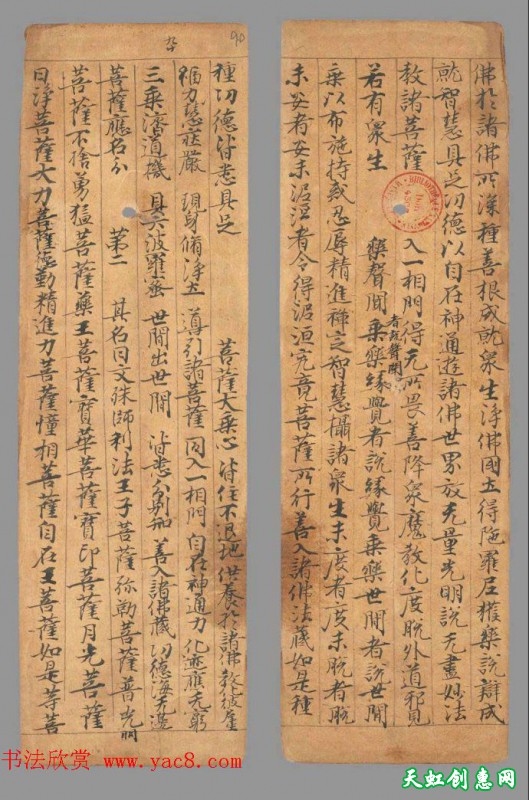 佛於諸佛所深種善根成就眾生淨佛國土得陁羅尼獲樂說辯成
就智慧具足功德以自在神通遊諸佛世界放无量光明說无盡妙法
教諸菩薩 入一相門得无所畏善降眾魔教化度脫外道邪見
若有眾生 樂聲聞乘者說聲聞樂緣覺者說緣覺乘樂世間者說世間
乘以布施持戒忍辱精進禪定智慧攝諸眾生未度者度未脫者脫
未安者安未涅洹者令得涅洹究竟菩薩所行善入諸佛法藏如是種
90
種功德皆悉具足 菩薩大乘心 皆住不退地 供養於諸佛 教
福力慧莊嚴 現身備淨土 導引諸菩薩 同入一相門 自在神通力 化變應无窮
三乘濟道機 具六波羅蜜 世間出世間 皆悉分別知 善入諸佛藏 功德海无邊
菩薩應名分 第二 其名曰文殊師利法王子菩薩弥勒菩薩普光明
菩薩不捨勇猛菩薩藥王菩薩寶華菩薩寶印菩薩月光菩薩
日淨菩薩大力菩薩勤精進力菩薩幢相菩薩自在王菩薩如是等菩
书法欣赏 www.yac8.com
天虹创惠网